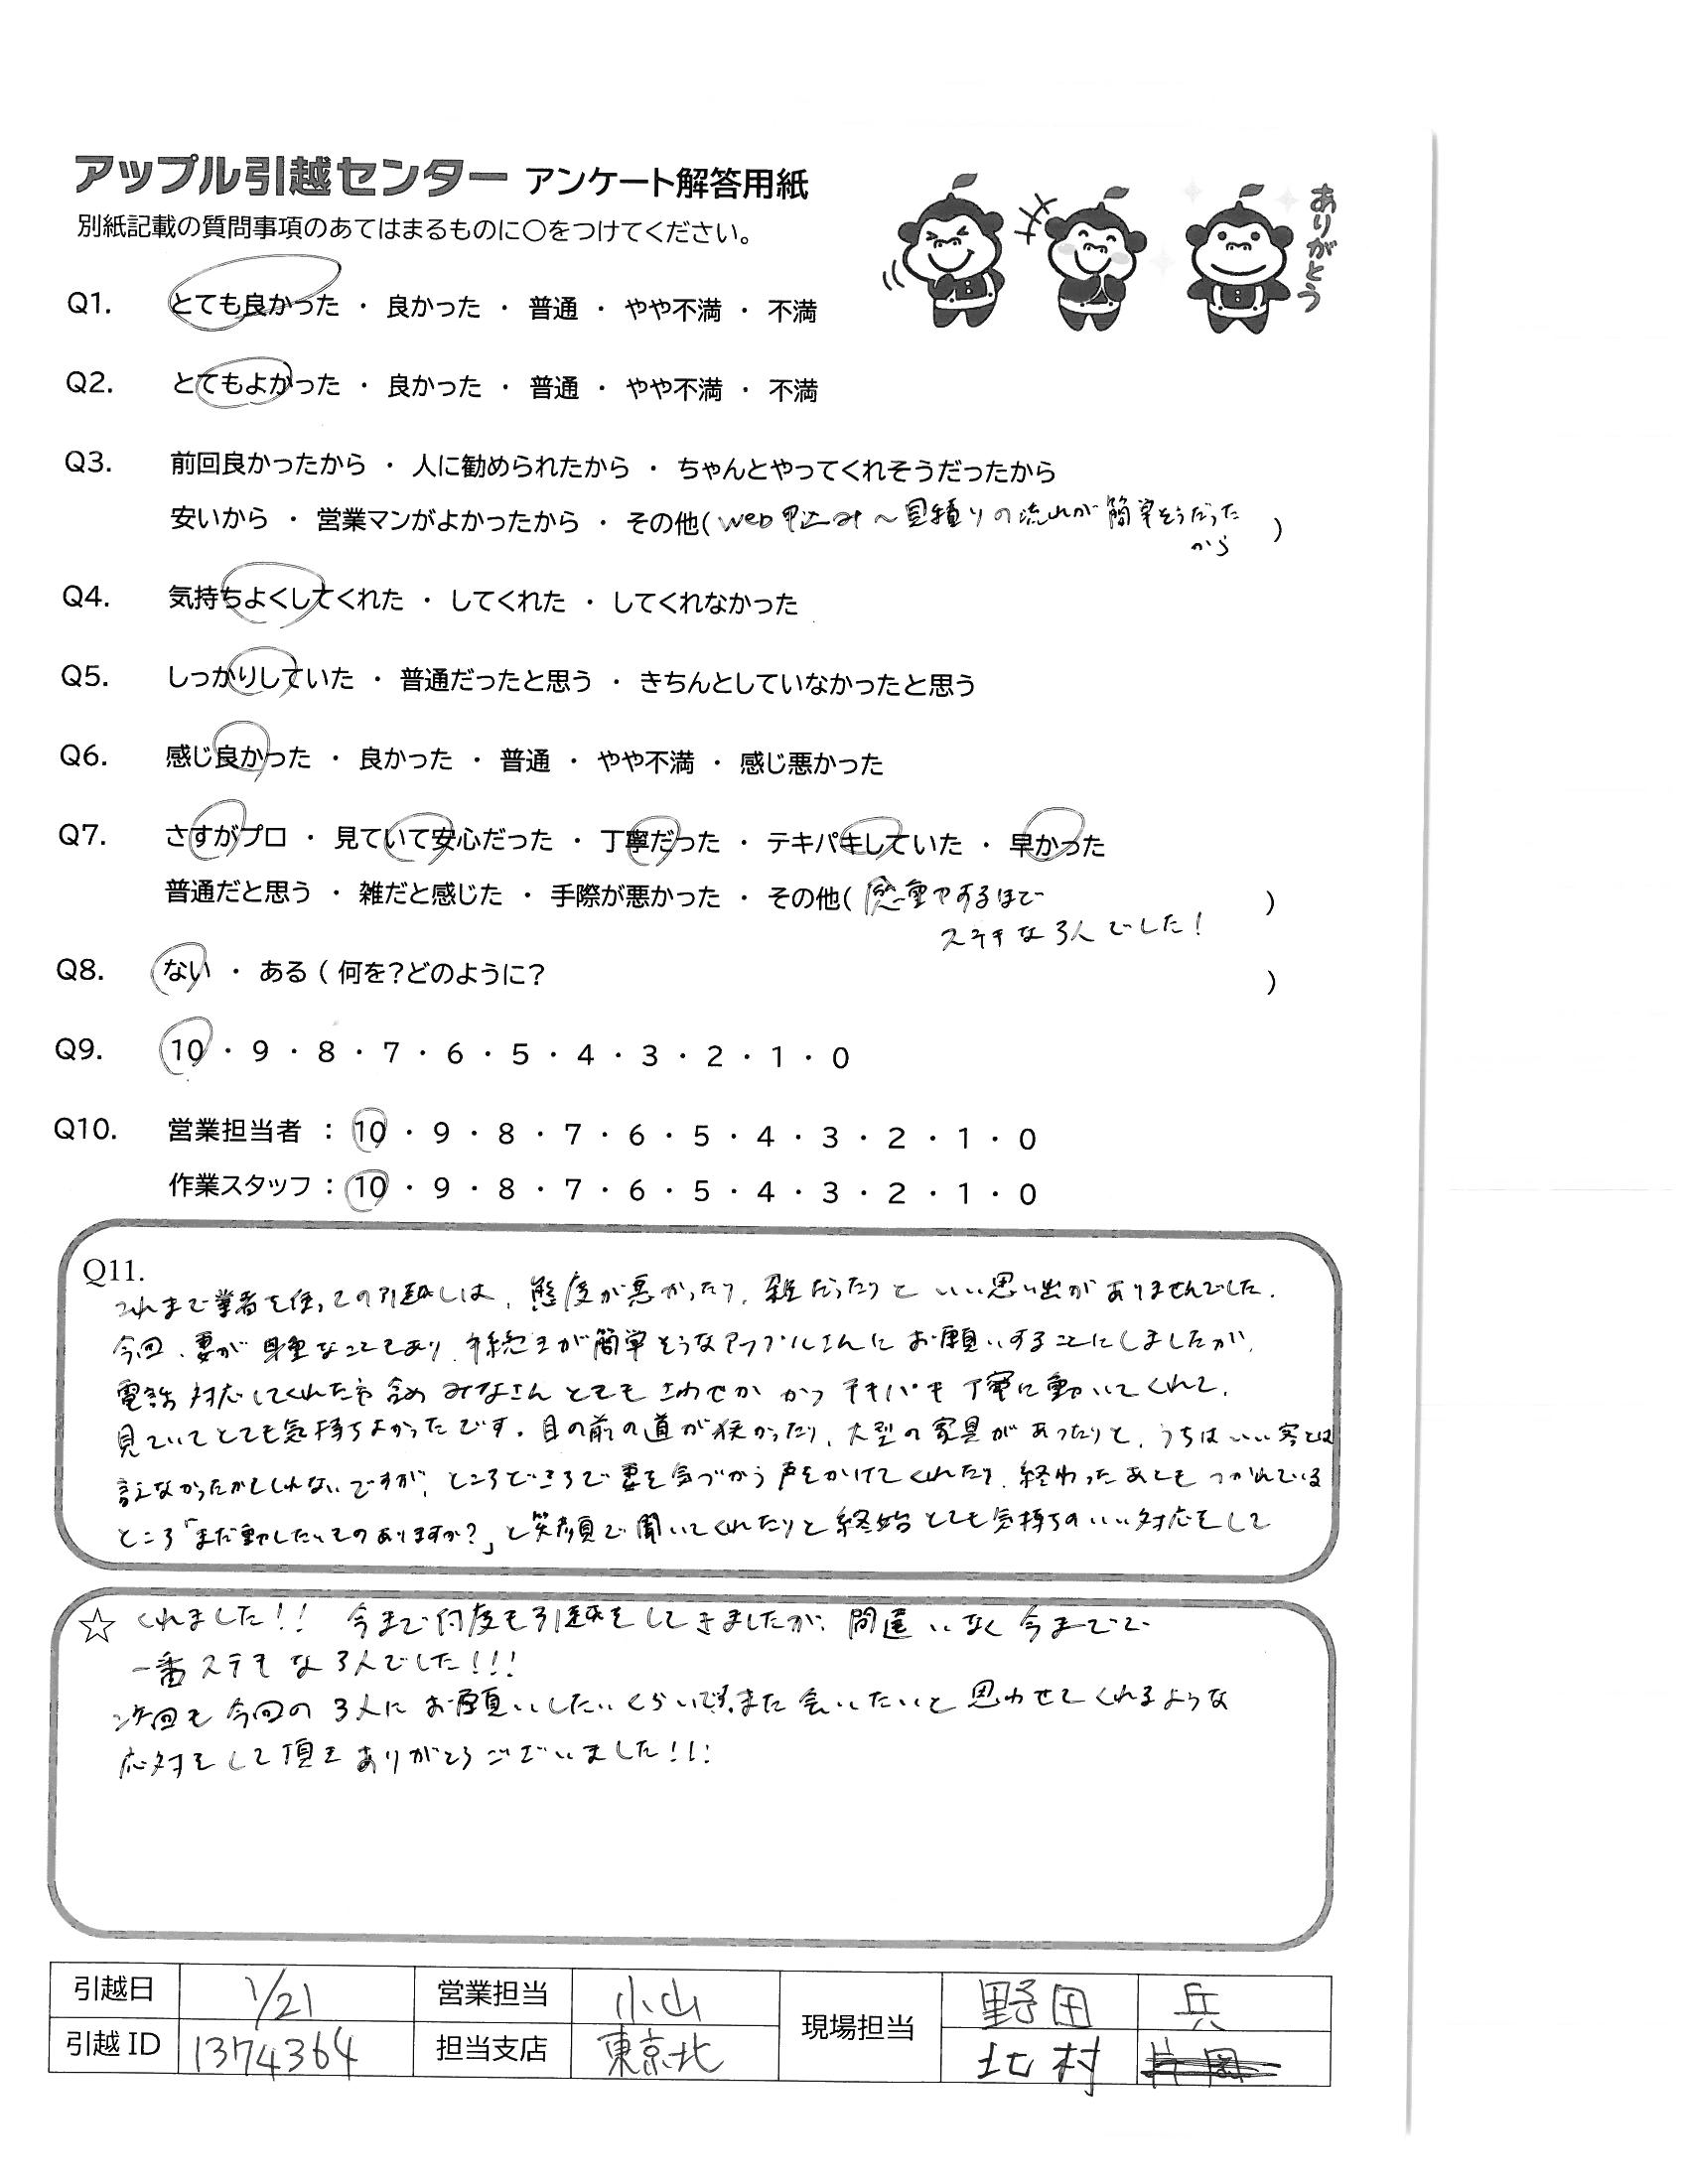 アップル引越センター アンケート解答用紙
別紙記載の質問事項のあてはまるものに〇をつけてください。
ありがとう
Q1. とても良かった ・ 良かった ・ 普通 ・ やや不満 ・ 不満
Q2. とてもよかった ・ 良かった ・ 普通 ・ やや不満 ・ 不満
Q3. 前回良かったから ・ 人に勧められたから ・ ちゃんとやってくれそうだったから
安いから ・ 営業マンがよかったから ・ その他( web申込み〜見積りの流れが簡単そうだった )
から
Q4. 気持ちよくしてくれた ・ してくれた ・ してくれなかった
Q5. しっかりしていた ・ 普通だったと思う ・ きちんとしていなかったと思う
Q6. 感じ良かった ・ 良かった ・ 普通 ・ やや不満 ・ 感じ悪かった
Q7. さすがプロ ・ 見ていて安心だった ・ 丁寧だった ・ テキパキしていた ・ 早かった
普通だと思う ・ 雑だと感じた ・ 手際が悪かった ・ その他( 感動するほど )
ステキな3人でした!
Q8. ない ・ ある ( 何を?どのように? )
Q9. 10 ・ 9 ・ 8 ・ 7 ・ 6 ・ 5 ・ 4 ・ 3 ・ 2 ・ 1 ・ 0
Q10. 営業担当者 : 10 ・ 9 ・ 8 ・ 7 ・ 6 ・ 5 ・ 4 ・ 3 ・ 2 ・ 1 ・ 0
作業スタッフ : 10 ・ 9 ・ 8 ・ 7 ・ 6 ・ 5 ・ 4 ・ 3 ・ 2 ・ 1 ・ 0
Q11.
これまで業者を使っての引越しは、態度が悪かったり、雑だったりといい思い出がありませんでした。
今回、妻が身重なこともあり、手続きが簡単そうなアップルさんにお願いすることにしましたが、
電話対応してくれた方含めみなさんとてもさわやかかつテキパキ丁寧に動いてくれて、
見ていてとても気持ちよかったです。目の前の道が狭かったり、大型の家具があったりと、うちはいい客とは
言えなかったかもしれないですが、ところどころで妻を気づかう声をかけてくれたり、終わったあともつかれている
ところ「まだ動かしたいものありますか?」と笑顔で聞いてくれたりと終始とても気持ちのいい対応をして
☆ くれました!! 今まで何度も引越をしてきましたが、間違いなく今までで
一番ステキな3人でした!!!
次回も今回の3人にお願いしたいくらいです。また会いたいと思わせてくれるような
応対をして頂きありがとうございました!!!
引越日 1/21 営業担当 小山 現場担当 野田 兵
引越ID 1374364 担当支店 東京北 北村 片岡